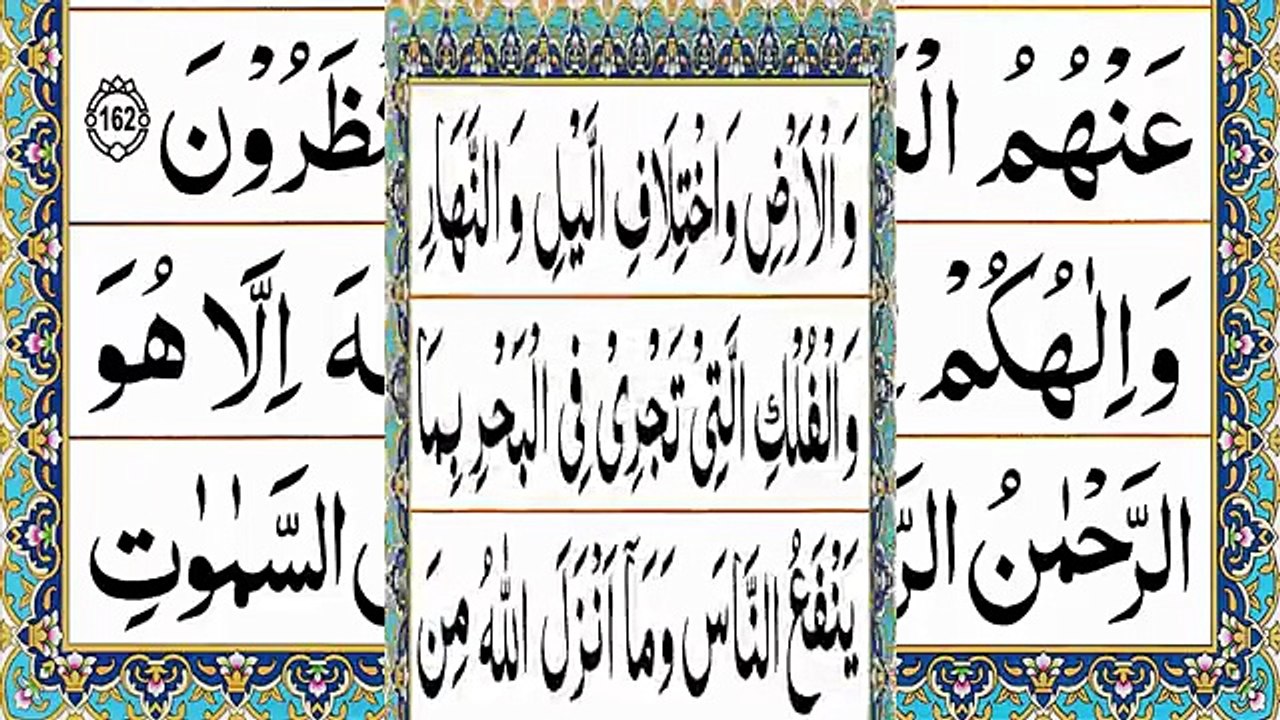 عَنْهُمُ
نْظَرُوْنَ 162
وَاِلٰهُكُمْ
اِلَّا هُوَ
الرَّحْمٰنُ
السَّمٰوٰتِ
وَ الْاَرْضِ وَاخْتِلَافِ الَّيْلِ وَ النَّهَارِ
وَ الْفُلْكِ الَّتِيْ تَجْرِيْ فِي الْبَحْرِ بِمَا
يَنْفَعُ النَّاسَ وَمَاۤ اَنْزَلَ اللّٰهُ مِنَ